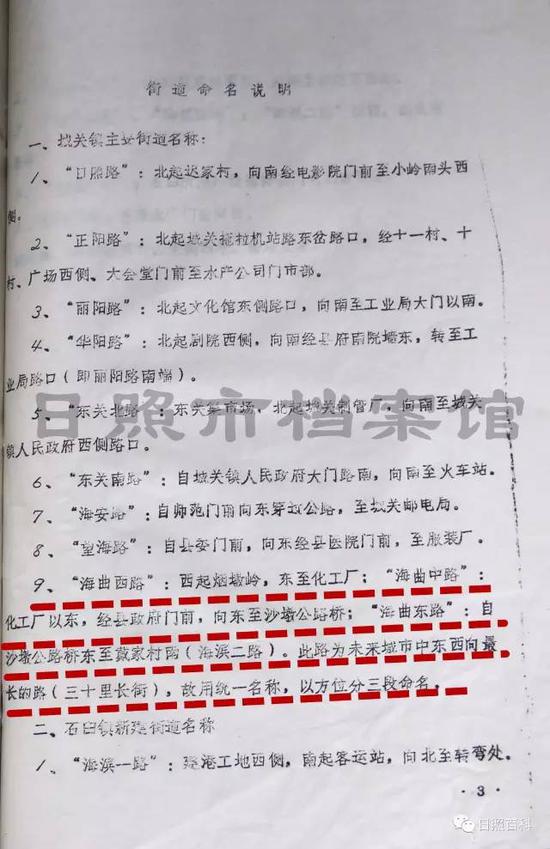 街道命名说明
一、城关镇主要街道名称：
1、“日照路”：北起迟家村，向南经电影院门前至小岭南头西
侧。
2、“正阳路”：北起城关拖拉机站路东岔路口，经十一村、十
村、广场西侧、大会堂门前至水产公司门市部。
3、“丽阳路”：北起文化馆东侧路口，向南至工业局大门以南。
4、“华阳路”：北起剧院西侧，向南经县府南院墙东，转至工
业局路口（即丽阳路南端）。
5、“东关北路”：东关集市场，北起城关制管厂，向南至城关
日照市档案馆
镇人民政府西侧路口。
6、“东关南路”：自城关镇人民政府大门路南，向南至火车站。
7、“海安路”：自师范门前向东穿过公路，至城关邮电局。
8、“望海路”：自县委门前，向东经县医院门前，至服装厂。
9、“海曲西路”：西起烟墩岭，东至化工厂；“海曲中路”：
化工厂以东，经县政府门前，向东至沙墩公路桥；“海曲东路”：自
沙墩公路桥东至戴家村西（海滨二路）。此路为未来城市中东西向最
长的路（三十里长街），故用统一名称，以方位分三段命名。
二、石臼镇新建街道名称
1、“海滨一路”：建港工地西侧，南起客运站，向北至转弯处。
·3·
日照百科